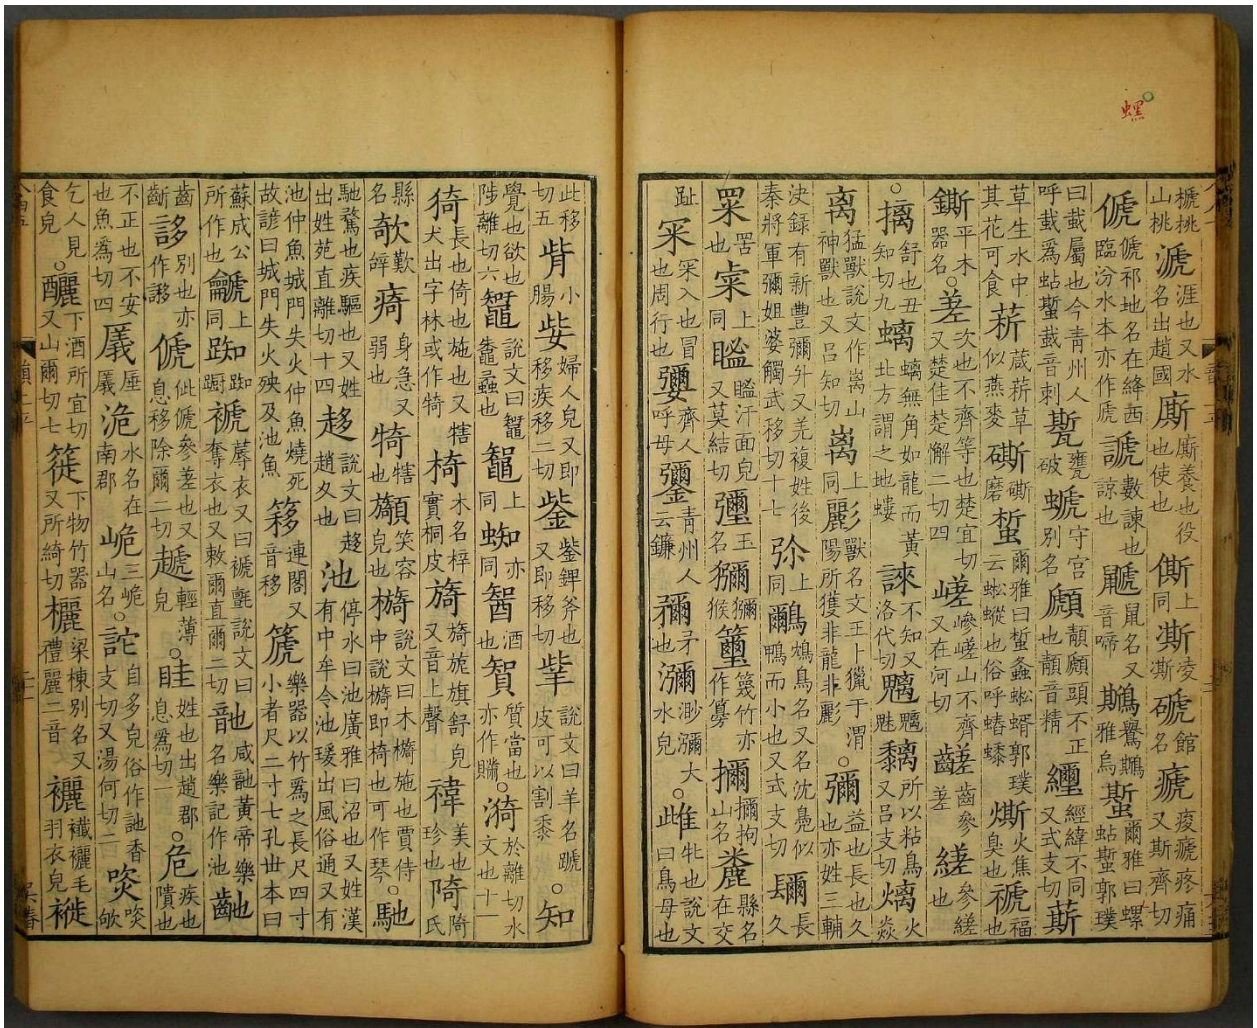 榹桃山桃㴲涯也又水名出趙國廝廝養也役也使也㒋上同凘凌凘磃館名㾷痠㾷疼痛又斯齊切
傂傂祁地名在絳西臨汾水本亦作虒謕數諫也諒也鼶鼠名又音啼鷽雅烏蟴爾雅曰螺蛅蟴郭璞
曰蛓屬也今青州人呼蛓爲蛅蟴蛓音刺甕破螔守宮別名頭不正也音精經緯不同又式支切𦺶
草生水中其花可食菥葴菥草似燕麥磃磨蜤爾雅曰蜤螽蜙蝑郭璞云蜙䗥也俗呼蝽蟍燍火焦臭也禠福也
鐁平木器名。差次也不齊等也楚宜切又楚佳楚懈二切四嵯嵾嵯山不齊又在河切齹齒參差縒參縒也
。摛舒也丑知切九螭螭無角如龍而黃北方謂之地螻誺不知又洛代切魑魑魅黐所以粘鳥又吕支切㷰火焱
离猛獸說文作离山神獸也又吕知切离上同彲獸名文王卜獵于渭陽所獲非龍非彲。彌益也長也久也亦姓三輔
決錄有新豐彌升又羌複姓後秦將軍彌姐婆觸武移切十七弥上同鸍鳥名又名沈鳧似鴨而小也又式支切镾長久
罙罟也䆲上同䁇䁇汗面皃又莫結切瓕玉名獼獼猴篾竹亦作擟擟拘山名麊縣名在交
趾冞罙入也冒也周行也齊人呼母青州人云鐮矛也瀰渺瀰大水皃。雌牝也說文曰鳥母也
此移切五胔小腸姕婦人皃又即移疾移二切鈭鈭錍斧也又即移切羍說文曰羊名蹏皮可以割黍。知
覺也欲也陟離切六鼅說文曰鼅鼄蟊也𪓿上同蜘亦同𥏼酒也質當也亦作賟。漪於離切水文也十一
猗長也倚也施也又犬出字林或作犄椅木名梓實桐皮旖旖旎旗舒皃又音上聲禕美也珍也陭陭氏
縣名欹歎辤㾨身急又弱也犄犗也笑容皃也檹說文曰木檹施也賈侍中說檹即椅也可作琴。馳
馳騖也疾驅也又姓出姓苑直離切十四趍說文曰趍趙夂也池停水曰池廣雅曰沼也又姓漢有中牟令池瑗出風俗通又有
池仲魚城門失火仲魚燒死故諺曰城門失火殃及池魚簃連閣又音移篪樂器以竹爲之長尺四寸小者尺二寸七孔丗本曰
蘇成公所作也𪛃上同踟踟躕褫蓐衣又曰褫氈說文曰奪衣也又敕爾直爾二切咸黃帝樂名樂記作池
齒齗𧧆別也亦作謻傂佌傂參差也又息移除爾二切䞾輕薄皃。眭姓也出趙郡息爲切一。危疾也隤也
不正也不安也魚爲切四㕒㕒㕒洈水名在南郡峗三峗山名。訑自多皃俗作訑香支切又湯何切二㱊㱊
乞人見食皃。釃下酒所宜切又山爾切七簁下物竹器又所綺切欐梁棟別名又禮麗二音襹襳襹毛羽衣皃褷